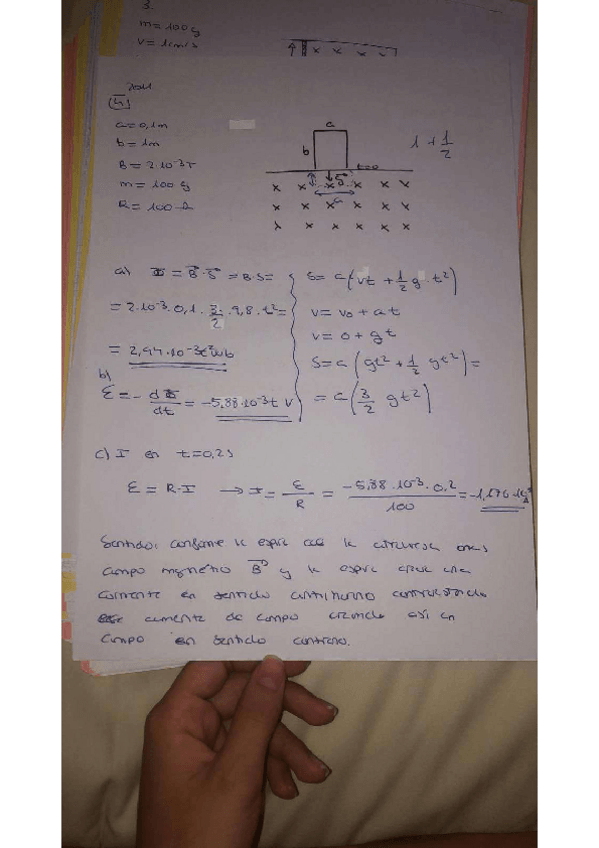 3.
m = 100g
v = 1cm/s
x x x x
2011
4
a = 0,1m
b = 1m
B = 2·10⁻³T
m = 100 g
R = 100 Ω
a
b
t=0
1 + 1/2
x x x x x x
x x x x x x
x x x x x x
a) Φ = B·S = B·S =
= 2·10⁻³·0,1·3/2·9,8·t² =
= 2,94·10⁻³t² Wb
S = a(vt + 1/2 g·t²)
v = v₀ + at
v = 0 + gt
S = a(gt² + 1/2 gt²) =
= a(3/2 gt²)
b)
ε = -dΦ/dt = -5,88·10⁻³t V
c) I en t=0,2s
ε = R·I → I = ε/R = -5,88·10⁻³·0,2/100 = -1,176·10⁻⁵ A
Sentido: conforme la espira cae la atraviesa más
campo magnético B y la espira crea una
corriente en sentido antihorario contrarrestando
ese aumento de campo creando así un
campo en sentido contrario.